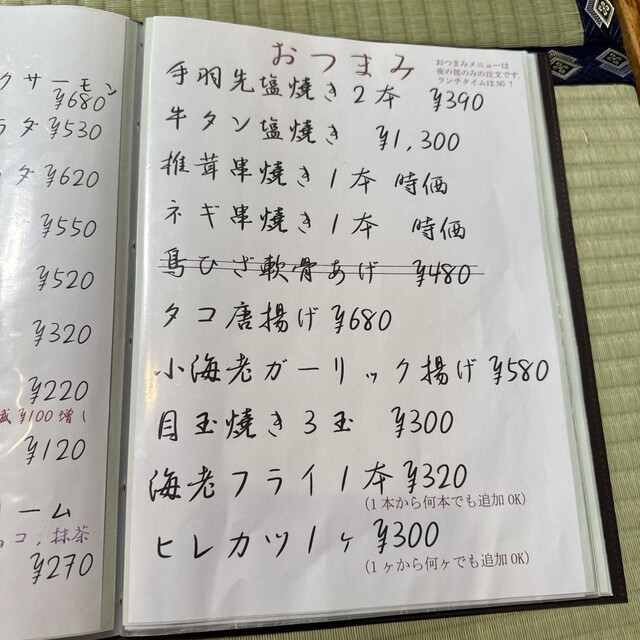 クサーモン
¥680
ラダ ¥530
ダ ¥620
¥550
¥520
¥320
¥220
¥100増し
¥120
リーム
ョコ、抹茶
¥270
おつまみ
おつまみメニューは
夜の部のみの注文です。
ランチタイムはNG！
手羽先塩焼き2本 ¥390
牛タン塩焼き ¥1,300
椎茸串焼き1本 時価
ネギ串焼き1本 時価
鳥ひざ軟骨あげ ¥480
タコ唐揚げ ¥680
小海老ガーリック揚げ ¥580
目玉焼き3玉 ¥300
海老フライ1本 ¥320
(1本から何本でも追加OK)
ヒレカツ1ヶ ¥300
(1ヶから何ヶでも追加OK)